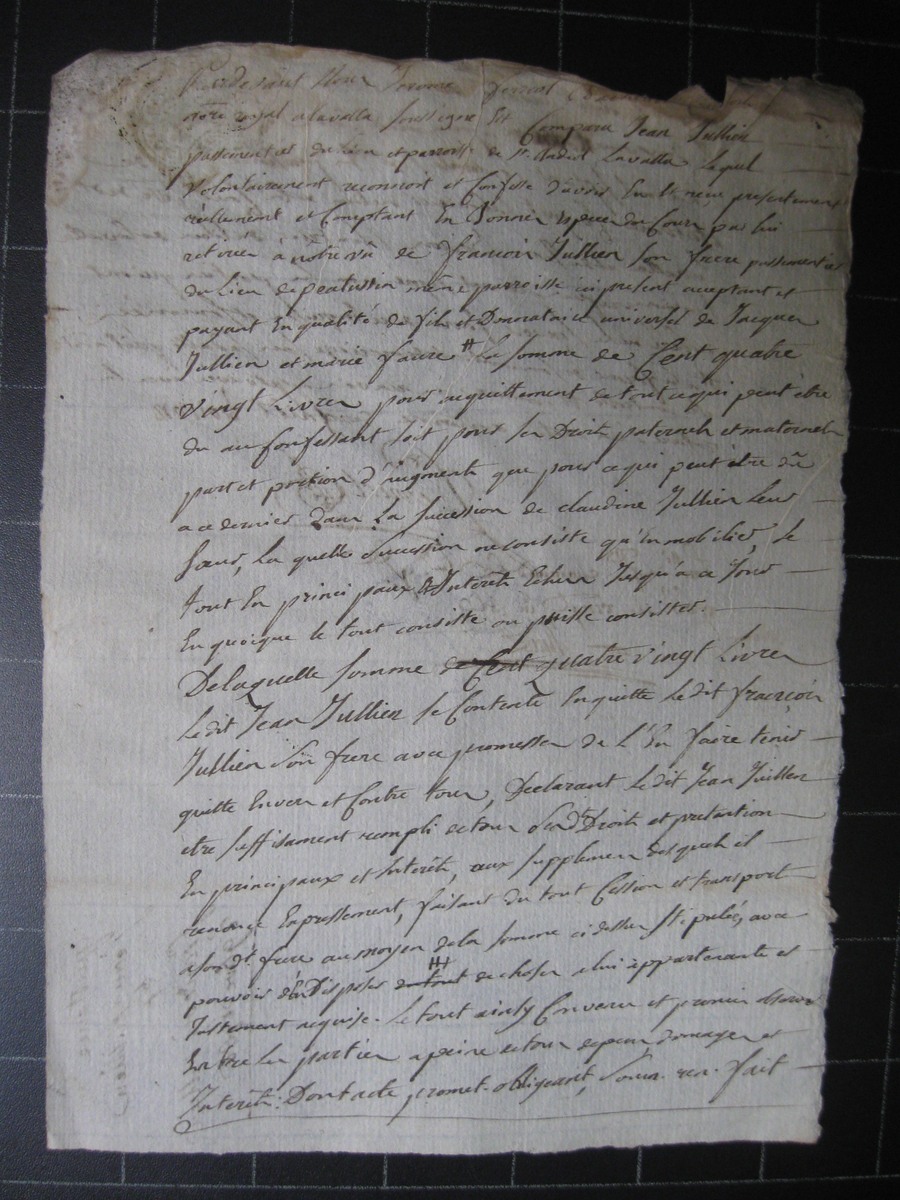 Pardevant Nous Jerome
nore royal a lavalla soussigné fut Comparu Jean Jullien
passementier du lieu et parroisse de St. Andeol Lavalla Lequel
Volontairement reconnoit et Confesse d'avoir Eu et receu presentement
réellement et Comptant En Bonnes espece du Cours par lui
retirées à nôtre vû de françois Jullien son frere passementier
du Lieu de peatussin même parroisse ici present acceptant et
payant En qualité de fils et Donnataire universel de Jacques
Jullien et marie faure # La somme de Cent quatre
vingt Livres pour acquittement de tout cequi peut être
du au Confessant soit pour ses Droits paternels et maternels
part et portion d'augments que pour cequi peut etre dû
a ce dernier dans La succession de claudine Jullien Leur
soeur, La quelle succession ne consiste qu'En mobilier, Le
tout En principaux & Interêts Echus Jusqu'a ce Jour
En quoique le tout consiste ou puisse consister.
Delaquelle somme de Cent quatre vingt Livres
Ledit Jean Jullien se Contente En quitte Ledit françois
Jullien son frere avec promesse de L'En faire tenir
quitte Envers et Contre tous, Declarant Ledit Jean Jullien
etre suffisament rempli de tous sesdts Droits et pretention
En principaux et Interêts, aux supplemens desquels il
renonce Expressement, faisant du tout Cession et transport
a son dt. frere au moyen de la somme ci dessus stipulée, avec
pouvoir d'En Disposer de tout ## de choses a lui appartenante et
Justement acquise. Le tout ainsy Convenu et promis observer
Entre Les parties a peine de tous depens domages et
Interêts: Dont acte promet. obligeant, soum. ren. fait